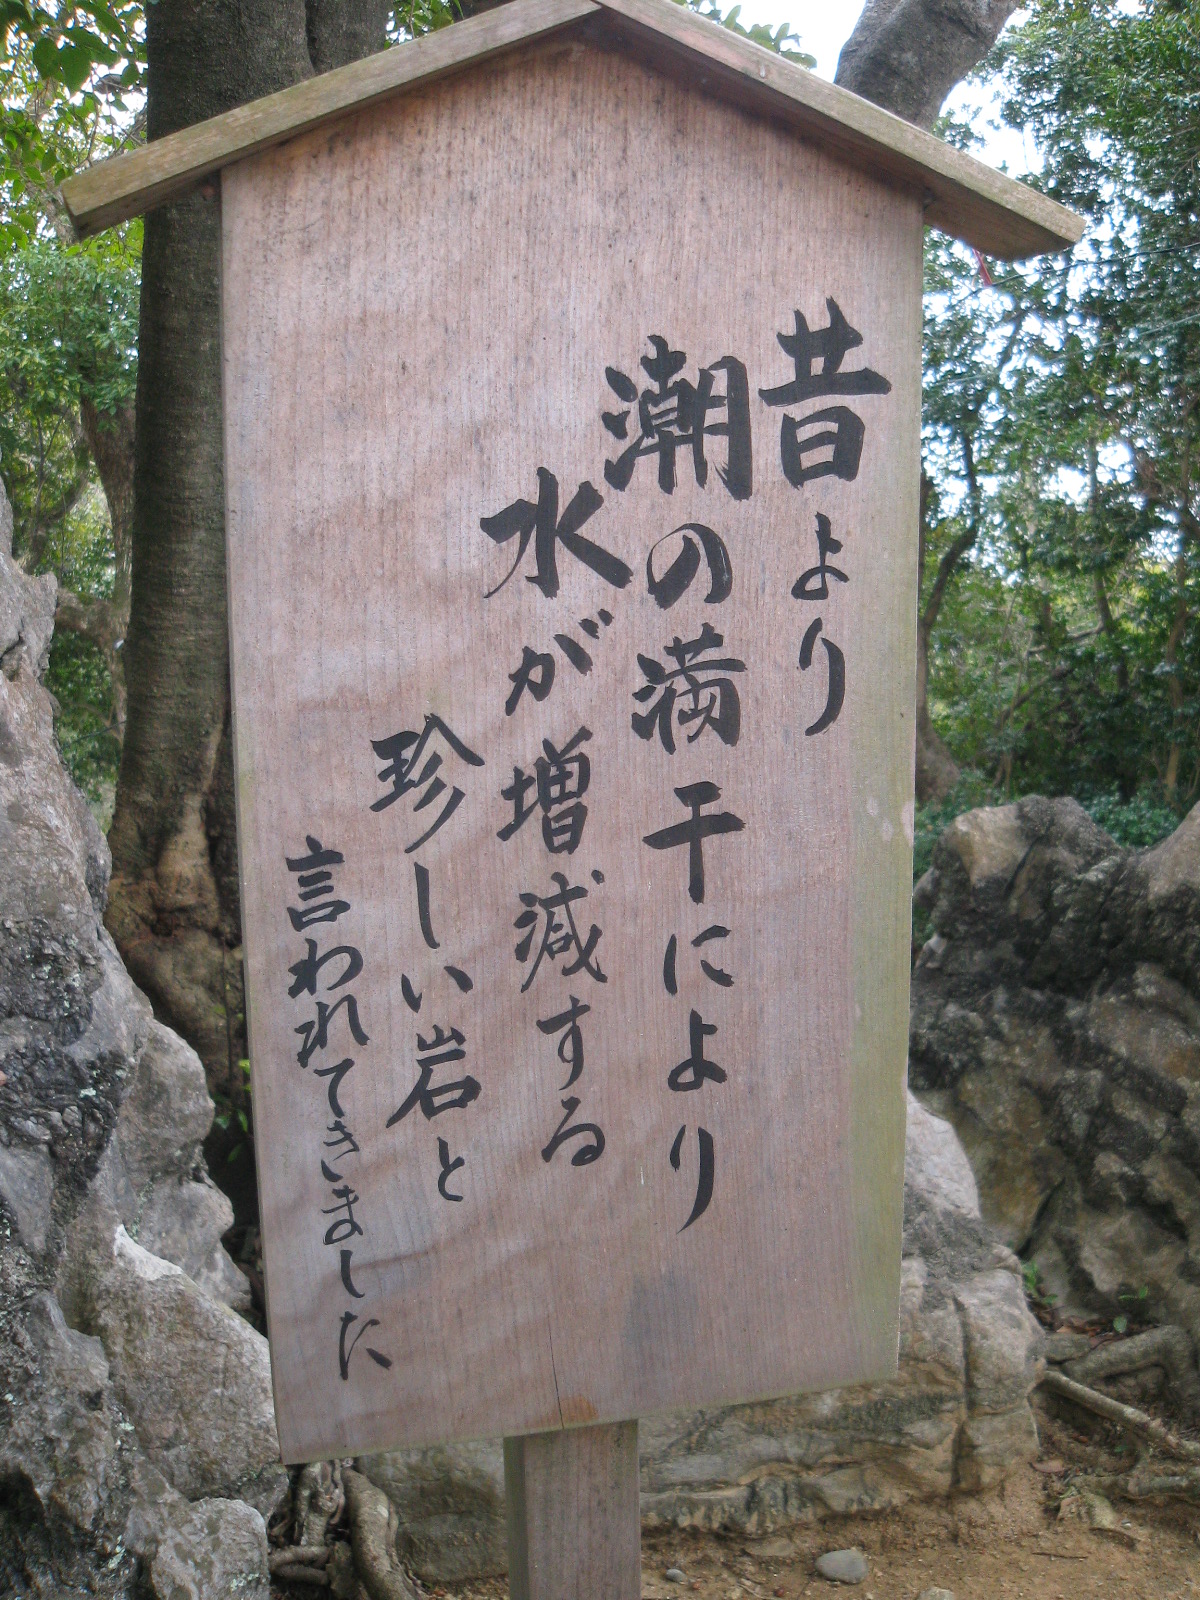 昔より
潮の満干により
水が増減する
珍しい岩と
言われてきました